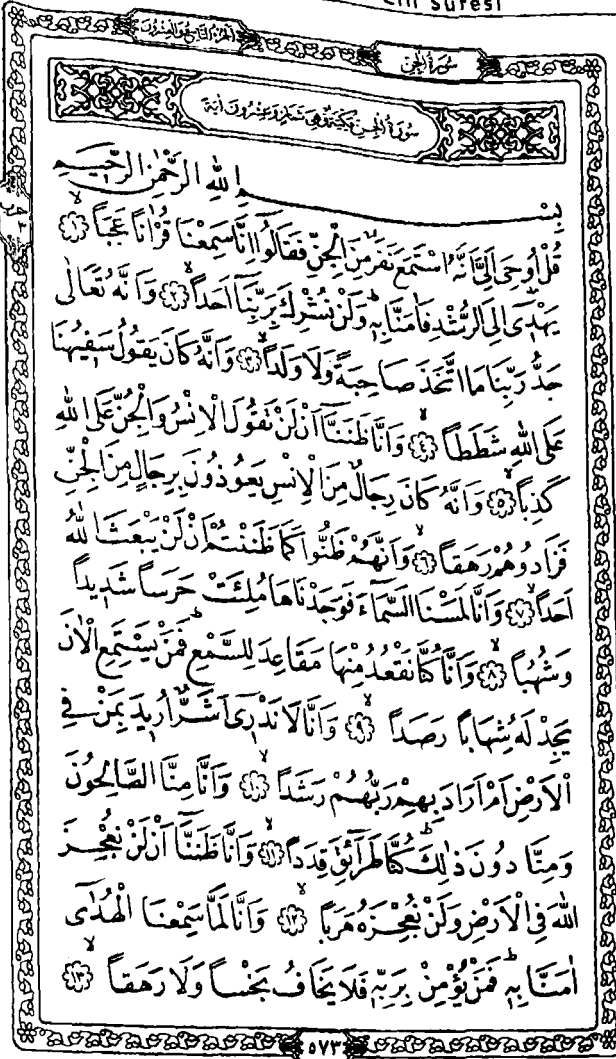 Cin Suresi
الجزء التاسع والعشرون
سورة الجن
سورة الجن مكية وهى ثمان وعشرون اية
بِسْمِ اللهِ الرَّحْمٰنِ الرَّحِيمِ
قُلْ اُوحِىَ اِلَىَّ اَنَّهُ اسْتَمَعَ نَفَرٌ مِنَ الْجِنِّ فَقَالُٓوا اِنَّا سَمِعْنَا قُرْاٰناً عَجَباً ﴿١﴾
يَهْدِٓى اِلَى الرُّشْدِ فَاٰمَنَّا بِهِ وَلَنْ نُشْرِكَ بِرَبِّنَٓا اَحَداً ﴿٢﴾ وَاَنَّهُ تَعَالٰى
جَدُّ رَبِّنَا مَا اتَّخَذَ صَاحِبَةً وَلَا وَلَداً ﴿٣﴾ وَاَنَّهُ كَانَ يَقُولُ سَفِيهُنَا
عَلَى اللهِ شَطَطاً ﴿٤﴾ وَاَنَّا ظَنَنَّٓا اَنْ لَنْ تَقُولَ الْاِنْسُ وَالْجِنُّ عَلَى اللهِ
كَذِباً ﴿٥﴾ وَاَنَّهُ كَانَ رِجَالٌ مِنَ الْاِنْسِ يَعُوذُونَ بِرِجَالٍ مِنَ الْجِنِّ
فَزَادُوهُمْ رَهَقاً ﴿٦﴾ وَاَنَّهُمْ ظَنُّوا كَمَا ظَنَنْتُمْ اَنْ لَنْ يَبْعَثَ اللهُ
اَحَداً ﴿٧﴾ وَاَنَّا لَمَسْنَا السَّمَٓاءَ فَوَجَدْنَاهَا مُلِئَتْ حَرَساً شَدِيداً
وَشُهُباً ﴿٨﴾ وَاَنَّا كُنَّا نَقْعُدُ مِنْهَا مَقَاعِدَ لِلسَّمْعِ فَمَنْ يَسْتَمِعِ الْاٰنَ
يَجِدْ لَهُ شِهَاباً رَصَداً ﴿٩﴾ وَاَنَّا لَا نَدْرِٓى اَشَرٌّ اُرِيدَ بِمَنْ فِى
الْاَرْضِ اَمْ اَرَادَ بِهِمْ رَبُّهُمْ رَشَداً ﴿١٠﴾ وَاَنَّا مِنَّا الصَّالِحُونَ
وَمِنَّا دُونَ ذٰلِكَ كُنَّا طَرَٓائِقَ قِدَداً ﴿١١﴾ وَاَنَّا ظَنَنَّٓا اَنْ لَنْ نُعْجِزَ
اللهَ فِى الْاَرْضِ وَلَنْ نُعْجِزَهُ هَرَباً ﴿١٢﴾ وَاَنَّا لَمَّا سَمِعْنَا الْهُدٰٓى
اٰمَنَّا بِهِ فَمَنْ يُؤْمِنْ بِرَبِّهِ فَلَا يَخَافُ بَخْساً وَلَا رَهَقاً ﴿١٣﴾
٥٧٣